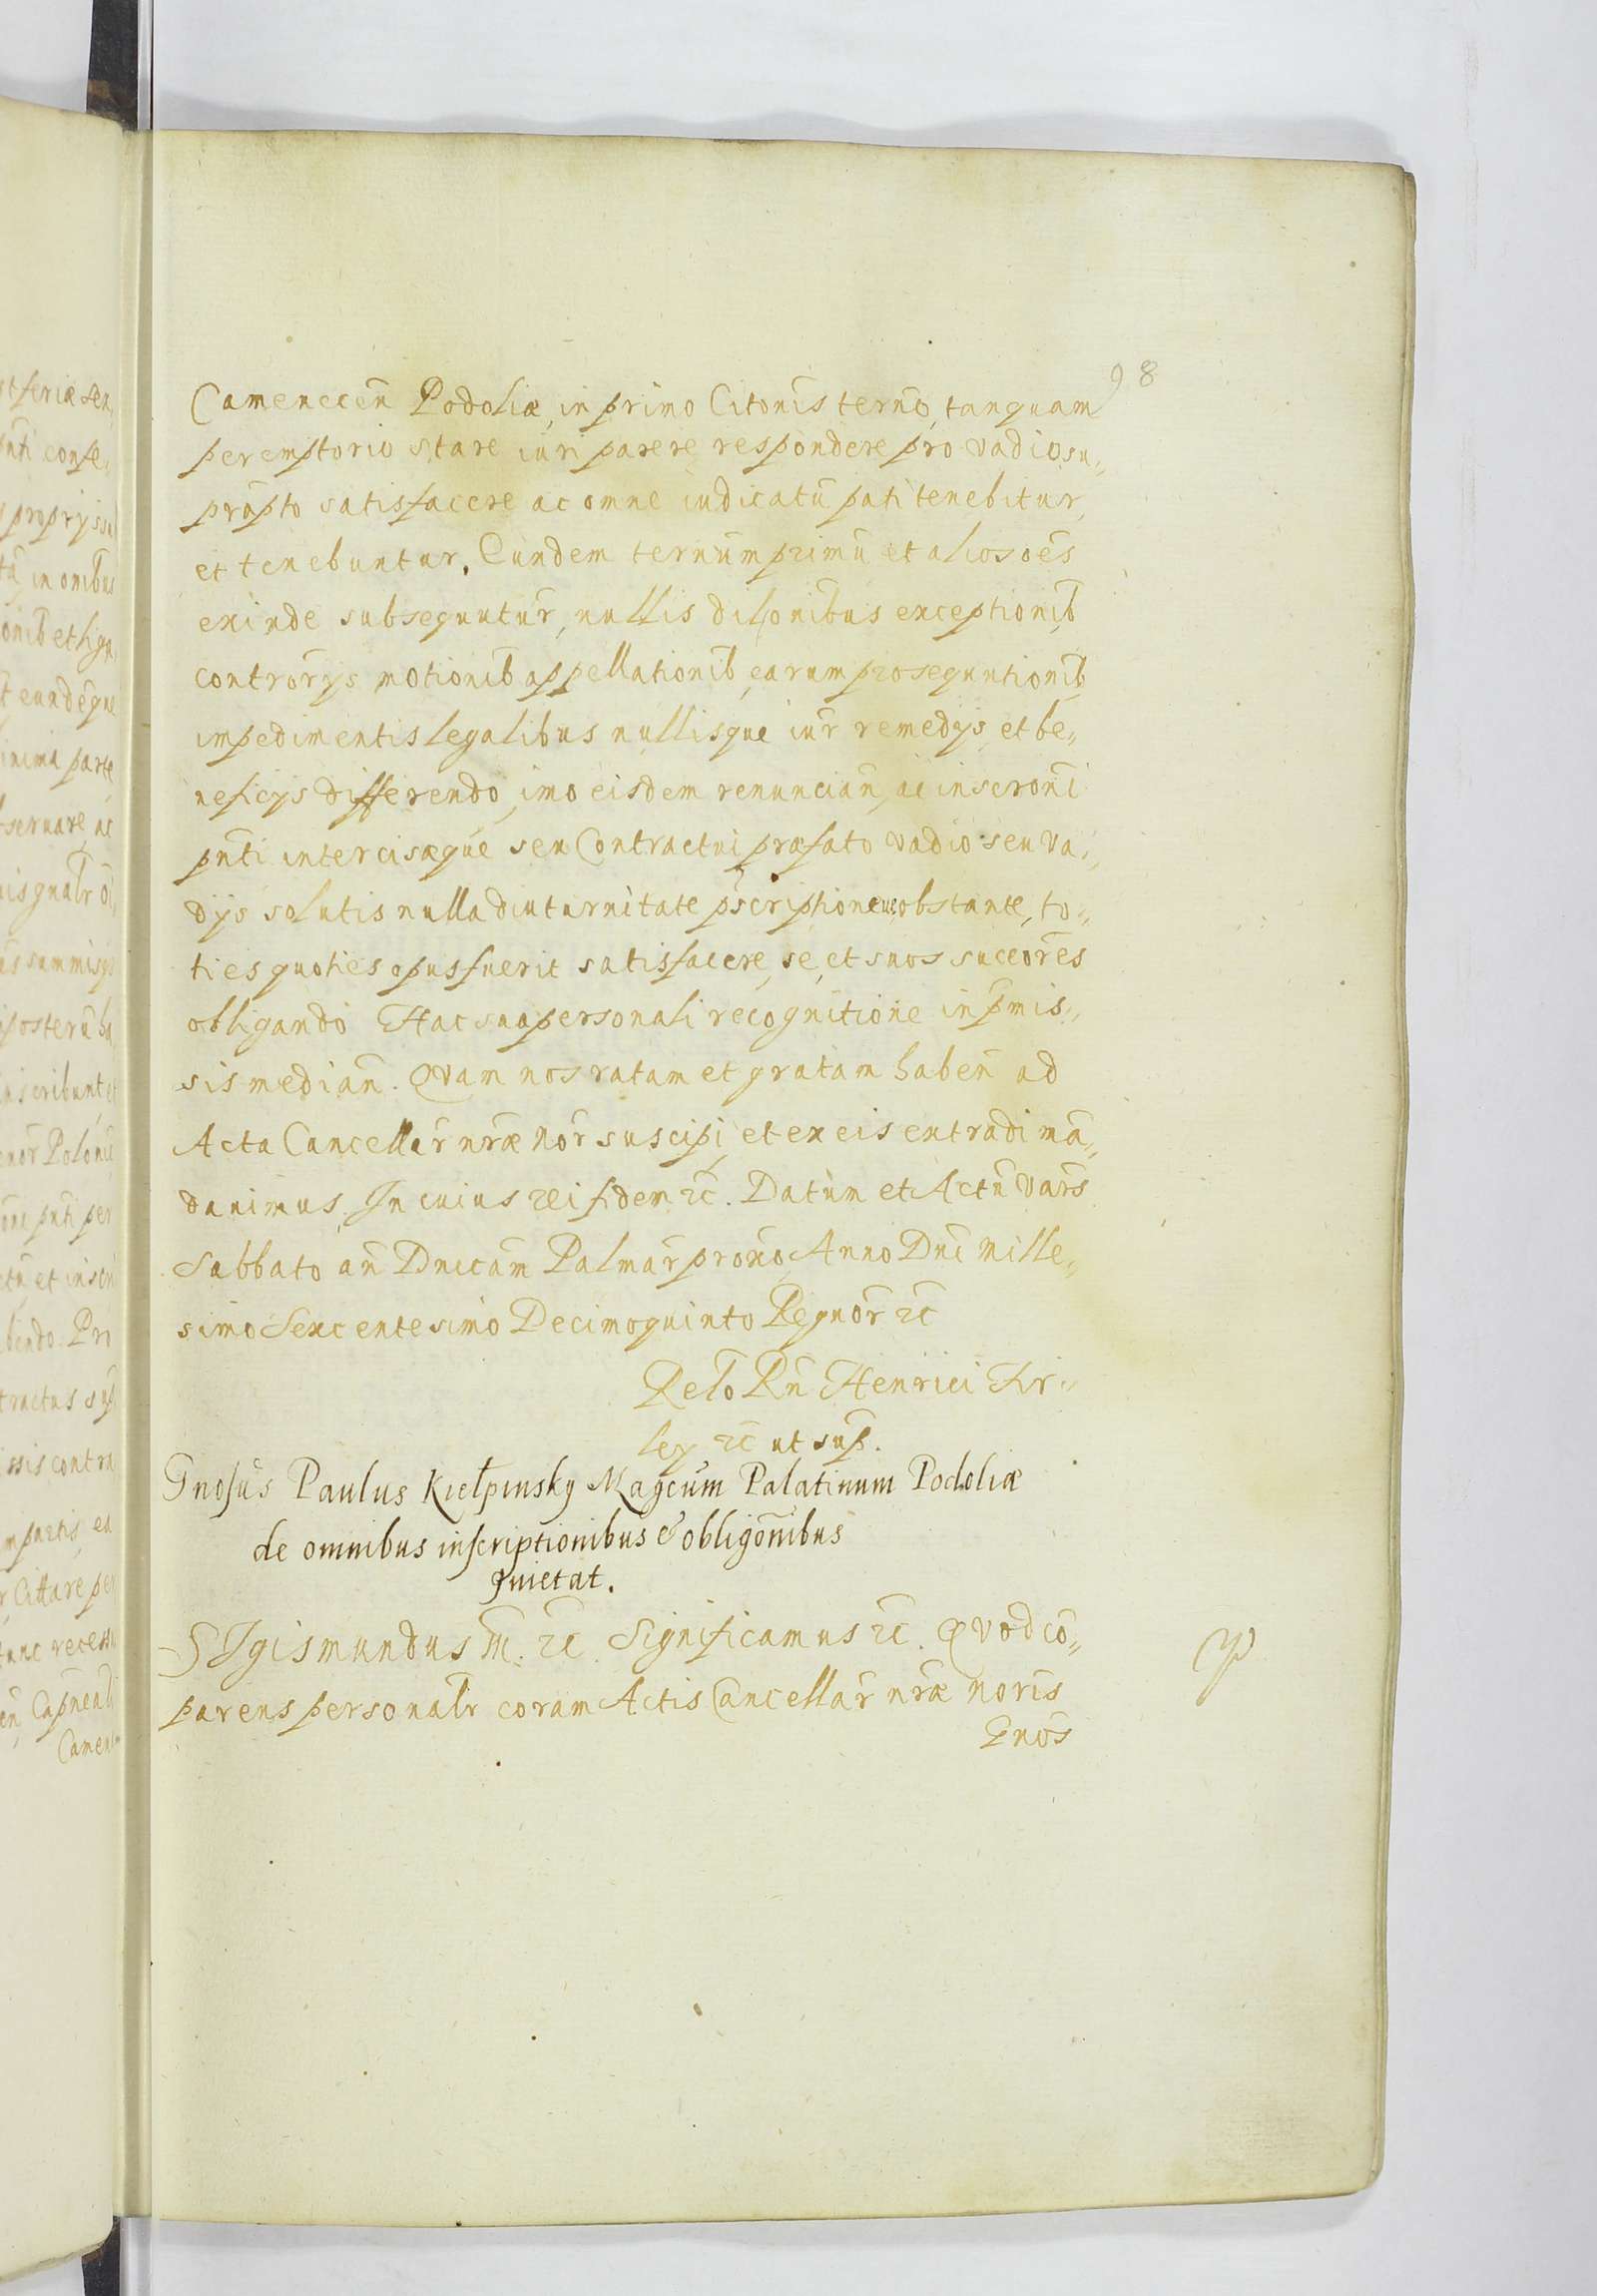 98
Camenecen̄ Podoliæ, in primo Citōnis terno, tanquam
peremptorio stare iuri parere respondere pro vadio su„
prapto satisfacere ac omne iudicatū pati tenebitur,
et tenebuntur. Eundem ternūm primū et alios oēs
exinde subsequutur̄, nullis dilōnibus exceptionib̄
contrōrys motionib̄ appellationib̄, earum prosequutionib̄
impedimentis legalibus nullisque iur̄ remedys et be„
neficys differendo, imo eisdem renuncian̄, ac inscrōni
pn̄ti intercisæque seu Contractui præfato vadio seu va„
dys solutis nulla diuturnitate pscriptioneue obstante, to„
ties quoties opus fuerit satisfacere, se, et suos succōres
obligando Hac sua personali recognitione in p̄mis„
sis median̄. Qvam nos ratam et gratam haben̄ ad
Acta Cancellar̄ nr̄æ Nor̄ suscipi, et ex eis extradi mā„
dauimus. In cuius rei fidem ꝛc̄. Datum et Actū Vars̄
Sabbato an̄ Dnicam̄ Palmar̄ pronō Anno Dn̄i Mille„
simo Sexcentesimo Decimoquinto Regnor̄ ꝛc̄
Relō Rn̄ Henrici Fir„
ley ꝛc̄ ut sup̄.
Gnosus Paulus Kiełpinsky Magcum Palatinum Podoliæ
de omnibus inscriptionibus & obligōnibus
quietat.
SIgismundus III. ꝛc̄. Significamus ꝛc̄. Qvod cō„
parens personalr̄ coram Actis Cancellar̄ nr̄æ Noris
Gnōs